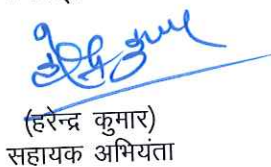 (हरेन्द्र कुमार)
सहायक अभियंता